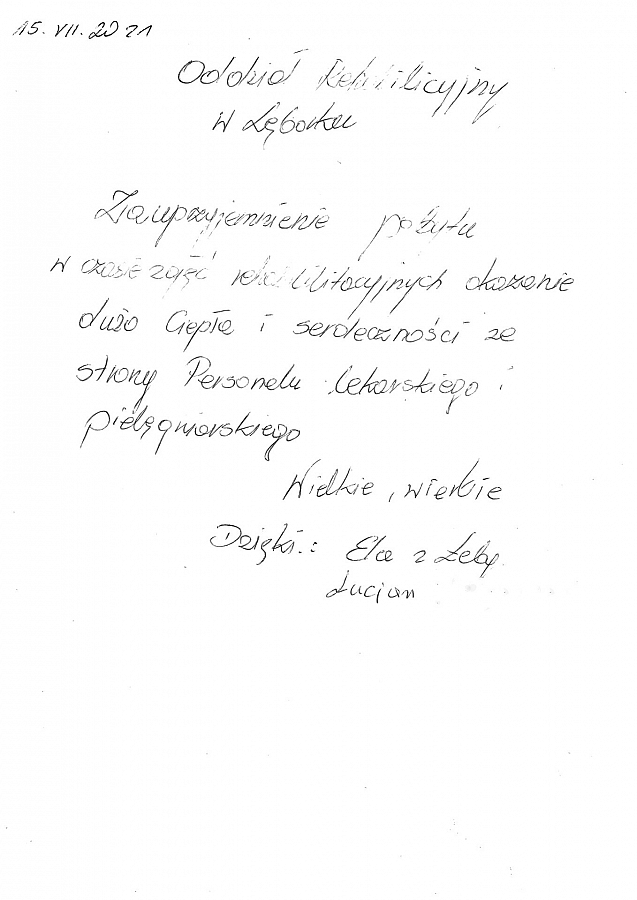 15. VII. 2021
Oddział Rehabilicyjny
w Lęborku
Za uprzyjemnienie pobytu
w czasie zajęć rehabilitacyjnych okazanie
dużo Ciepła i serdeczności ze
strony Personelu lekarskiego i
pielęgniarskiego
Wielkie, wielkie
Dzięki.: Ela z Łeby
Lucjan